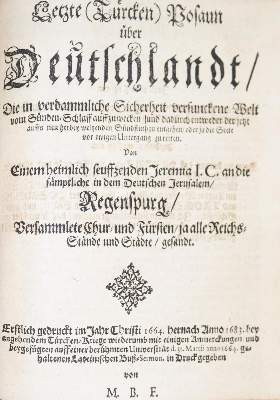 Letzte (Türcken) Posaun
über
Deutschlandt/
Die in verdammliche Sicherheit versunckene Welt
vom Sünden-Schlaff auffzuwecken/ und dadurch entweder der jetzt
auffs neu herbey
oder je die Seele
vor ewigen Untergang zu retten.
Von
Einem heimlich seuffzenden Jeremia I. C. an die
sämptliche in dem Deutschen Jerusalem/
Regenspurg/
Versammlete Chur- und Fürsten/ ja alle Reichs-
Stände und Städte/ gesandt.
Erstlich gedruckt im Jahr Christi 1664. hernach Anno 1683. bey
angehendem Türcken-Kriege wiederumb mit einigen Anmerckungen und
beygefügten auff einer berühmten Universität d. Martii anno 1664. ge-
haltenen Lateinischen Buß-Sermon. in Druck gegeben
von
M. B. F.